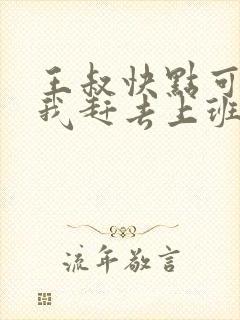 王叔快點可
我赶去上班
流年敬言